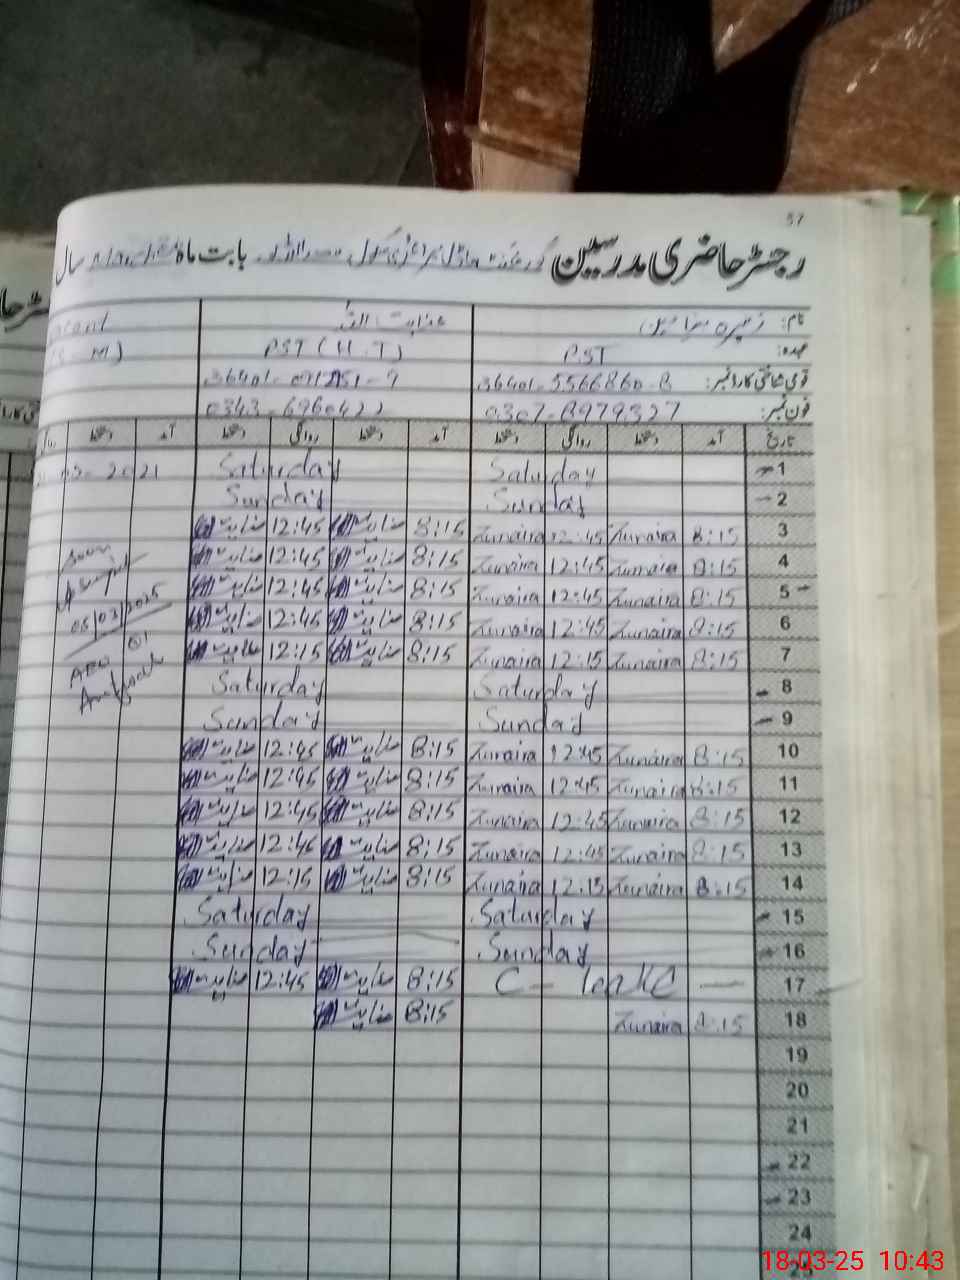 57
رجسٹر حاضری مدرسین گورنمنٹ ماڈل پرائمری سکول بابت ماہ سال
نام: زنیرہ عنایت اللہ
عہدہ: PST PST (H.T) (S.M)
قومی شناختی کارڈ نمبر: 36401-5566860-8
فون نمبر: 0307-8979327 0343-6960422
تاریخ آمد دستخط روانگی دستخط آمد دستخط روانگی دستخط آمد دستخط
1 Saturday Saturday 2021
2 Sunday Sunday
3 8:15 Zunaira 12:45 Zunaira 8:15 عنایت 12:45 عنایت
4 8:15 Zunaira 12:45 Zunaira 8:15 عنایت 12:45 عنایت
5 8:15 Zunaira 12:45 Zunaira 8:15 عنایت 12:45 عنایت
6 8:15 Zunaira 12:45 Zunaira 8:15 عنایت 12:45 عنایت
7 8:15 Zunaira 12:15 Zunaira 8:15 عنایت 12:15 عنایت
8 Saturday Saturday
9 Sunday Sunday
10 8:15 Zunaira 12:45 Zunaira 8:15 عنایت 12:45 عنایت
11 8:15 Zunaira 12:45 Zunaira 8:15 عنایت 12:45 عنایت
12 8:15 Zunaira 12:45 Zunaira 8:15 عنایت 12:45 عنایت
13 8:15 Zunaira 12:45 Zunaira 8:15 عنایت 12:45 عنایت
14 8:15 Zunaira 12:15 Zunaira 8:15 عنایت 12:15 عنایت
15 Saturday Saturday
16 Sunday Sunday
17 C - leave 8:15 عنایت 12:45 عنایت
18 8:15 Zunaira 8:15 عنایت
19
20
21
22
23
24
25
Seen
05/03/2025
AEO
18-03-25 10:43